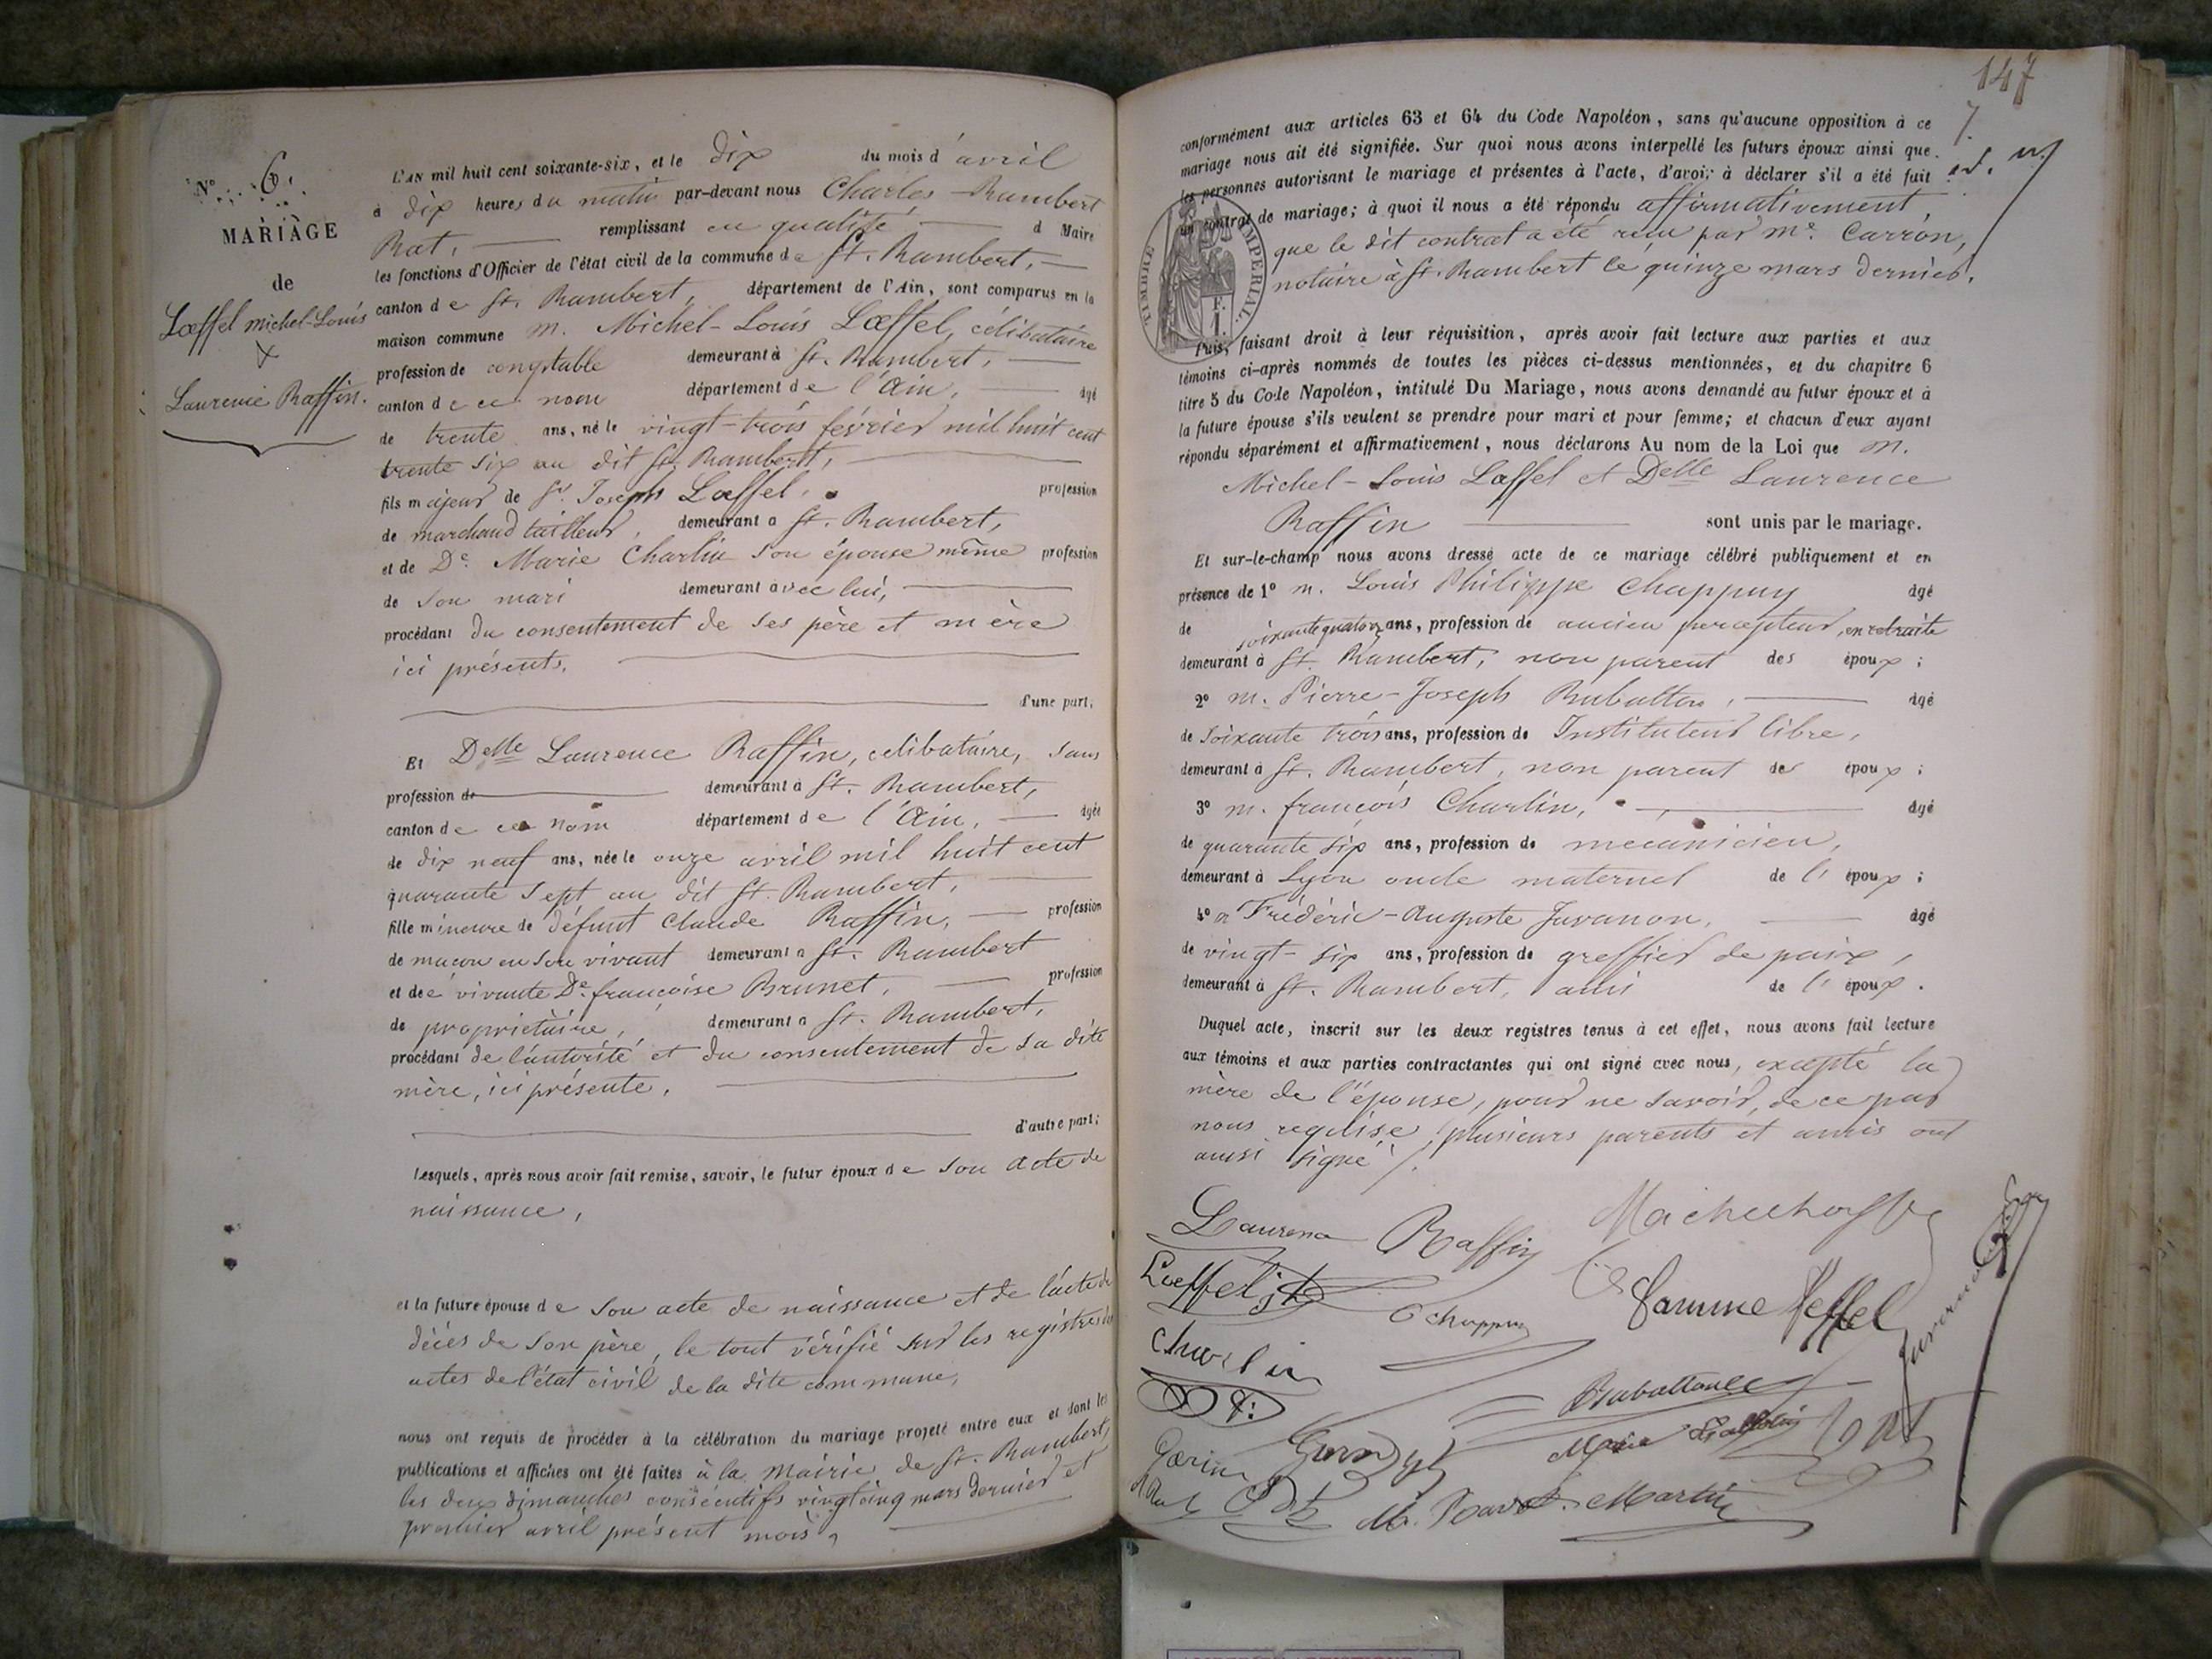 N° 6.
MARIAGE
de
Lœffel michel-Louis
&
Laurence Raffin.
L'AN mil huit cent soixante-six, et le dix du mois d'avril
à dix heures du matin par-devant nous Charles Rambert
Rat, remplissant en qualité d Maire
les fonctions d'Officier de l'état civil de la commune de St. Rambert,
canton de St. Rambert, département de l'Ain, sont comparus en la
maison commune M. Michel-Louis Lœffel, célibataire
profession de comptable demeurant à St. Rambert,
canton de ce nom département de l'Ain, âgé
de trente ans, né le vingt-trois février mil huit cent
trente six au dit St. Rambert,
fils majeur de Sr. Joseph Lœffel, profession
de marchand tailleur, demeurant a St. Rambert,
et de De. Marie Charlin son épouse même profession
de son mari demeurant avec lui,
procédant du consentement de ses père et mère
ici présents,
d'une part;
Et Delle Laurence Raffin, célibataire, sans
profession de demeurant à St. Rambert,
canton de ce nom département de l'Ain, âgée
de dix neuf ans, née le onze avril mil huit cent
quarante sept au dit St. Rambert,
fille mineure de défunt Claude Raffin, profession
de maçon en son vivant demeurant a St. Rambert
et de vivante De. françoise Brunet, profession
de propriétaire, demeurant a St. Rambert,
procédant de l'autorité et du consentement de sa dite
mère, ici présente,
d'autre part;
Lesquels, après nous avoir fait remise, savoir, le futur époux de son acte de
naissance,
et la future épouse de son acte de naissance et de l'acte de
décès de son père, le tout vérifié sur les registres des
actes de l'état civil de la dite commune,
nous ont requis de procéder à la célébration du mariage projeté entre eux et dont les
publications et affiches ont été faites à la mairie de St. Rambert,
les deux dimanches consécutifs vingt cinq mars dernier et
premier avril présent mois,
147
conformément aux articles 63 et 64 du Code Napoléon, sans qu'aucune opposition à ce
mariage nous ait été signifiée. Sur quoi nous avons interpellé les futurs époux ainsi que
les personnes autorisant le mariage et présentes à l'acte, d'avoir à déclarer s'il a été fait
un contrat de mariage; à quoi il nous a été répondu affirmativement,
que le dit contrat a été reçu par Me. Carron,
notaire à St. Rambert le quinze mars dernier.
TIMBRE IMPERIAL
F.
1.
Puis, faisant droit à leur réquisition, après avoir fait lecture aux parties et aux
témoins ci-après nommés de toutes les pièces ci-dessus mentionnées, et du chapitre 6
titre 5 du Code Napoléon, intitulé Du Mariage, nous avons demandé au futur époux et à
la future épouse s'ils veulent se prendre pour mari et pour femme; et chacun d'eux ayant
répondu séparément et affirmativement, nous déclarons Au nom de la Loi que M.
Michel-Louis Lœffel et Delle Laurence
Raffin sont unis par le mariage.
Et sur-le-champ nous avons dressé acte de ce mariage célébré publiquement et en
présence de 1° M. Louis Philippe Chappuy âgé
de soixante quatorze ans, profession de ancien percepteur, en retraite
demeurant à St. Rambert, non parent des époux;
2° M. Pierre-Joseph Rubatton, âgé
de soixante trois ans, profession de Instituteur libre,
demeurant à St. Rambert, non parent des époux;
3° M. françois Charlin, âgé
de quarante six ans, profession de mecanicien,
demeurant à Lyon oncle maternel de l'époux;
4° M Frédéric-Auguste Juvanon, âgé
de vingt-six ans, profession de greffier de paix,
demeurant à St. Rambert, ami de l'époux.
Duquel acte, inscrit sur les deux registres tenus à cet effet, nous avons fait lecture
aux témoins et aux parties contractantes qui ont signé avec nous, excepté la
mère de l'épouse, pour ne savoir, de ce par
nous requise, plusieurs parents et amis ont
aussi signé.
Laurence Raffin
Lœffel
Chappuy
famme Leffel
Charlin
Juvanon
Rubatton
Marie
Rat
Martin